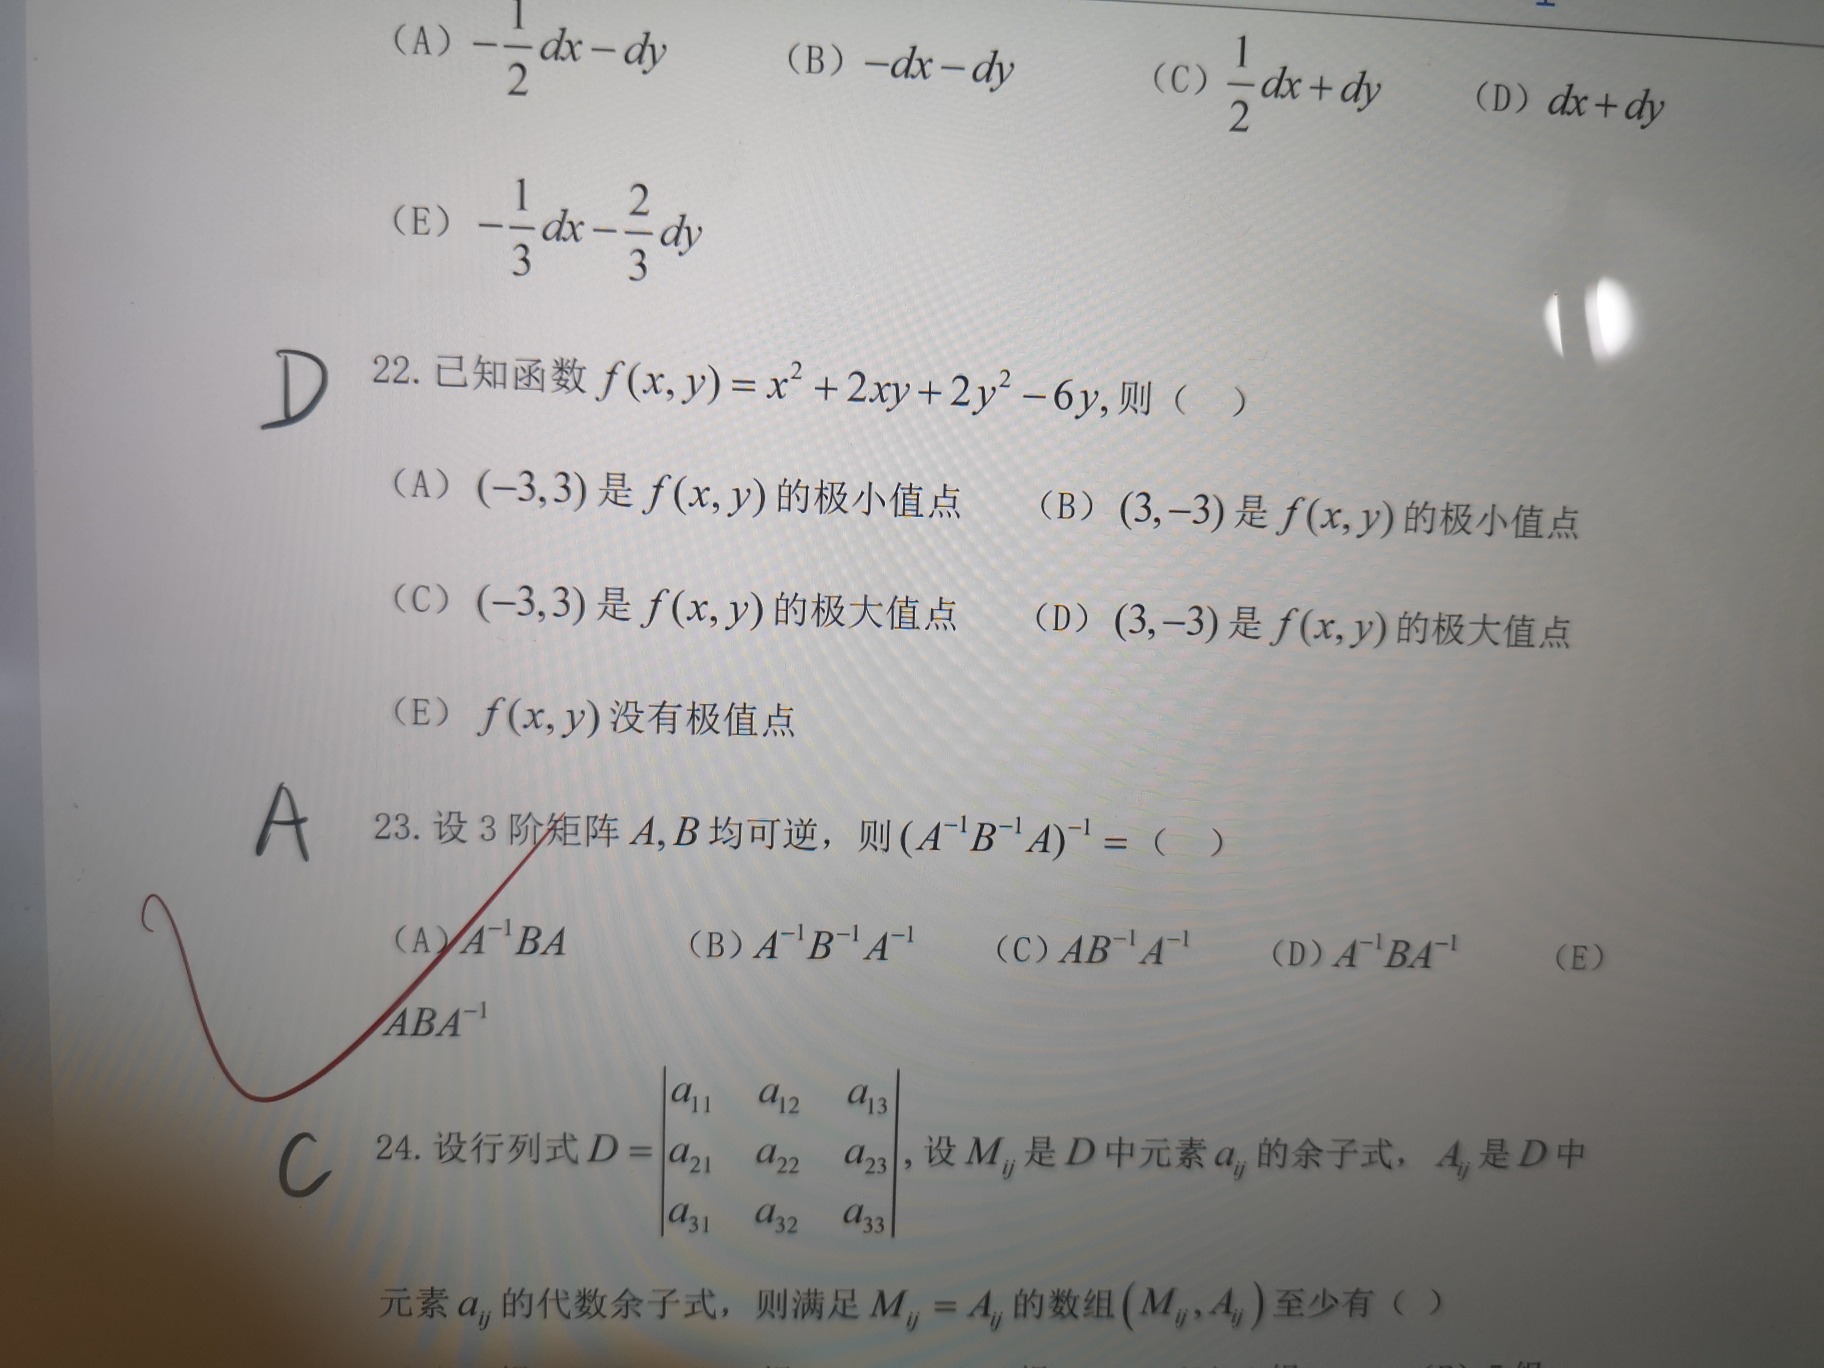 (A) $-\frac{1}{2}dx-dy$ (B) $-dx-dy$ (C) $\frac{1}{2}dx+dy$ (D) $dx+dy$
(E) $-\frac{1}{3}dx-\frac{2}{3}dy$
D 22.已知函数 $f(x,y)=x^2+2xy+2y^2-6y$,则（ ）
(A) $(-3,3)$ 是 $f(x,y)$ 的极小值点 (B) $(3,-3)$ 是 $f(x,y)$ 的极小值点
(C) $(-3,3)$ 是 $f(x,y)$ 的极大值点 (D) $(3,-3)$ 是 $f(x,y)$ 的极大值点
(E) $f(x,y)$ 没有极值点
A 23.设 3 阶矩阵 $A,B$ 均可逆，则 $(A^{-1}B^{-1}A)^{-1}=$（ ）
(A) $A^{-1}BA$ (B) $A^{-1}B^{-1}A^{-1}$ (C) $AB^{-1}A^{-1}$ (D) $A^{-1}BA^{-1}$ (E)
$ABA^{-1}$
C 24.设行列式 $D=\begin{vmatrix}a_{11}&a_{12}&a_{13}\\a_{21}&a_{22}&a_{23}\\a_{31}&a_{32}&a_{33}\end{vmatrix}$,设 $M_{ij}$ 是 $D$ 中元素 $a_{ij}$ 的余子式，$A_{ij}$ 是 $D$ 中
元素 $a_{ij}$ 的代数余子式，则满足 $M_{ij}=A_{ij}$ 的数组 $(M_{ij},A_{ij})$ 至少有（ ）